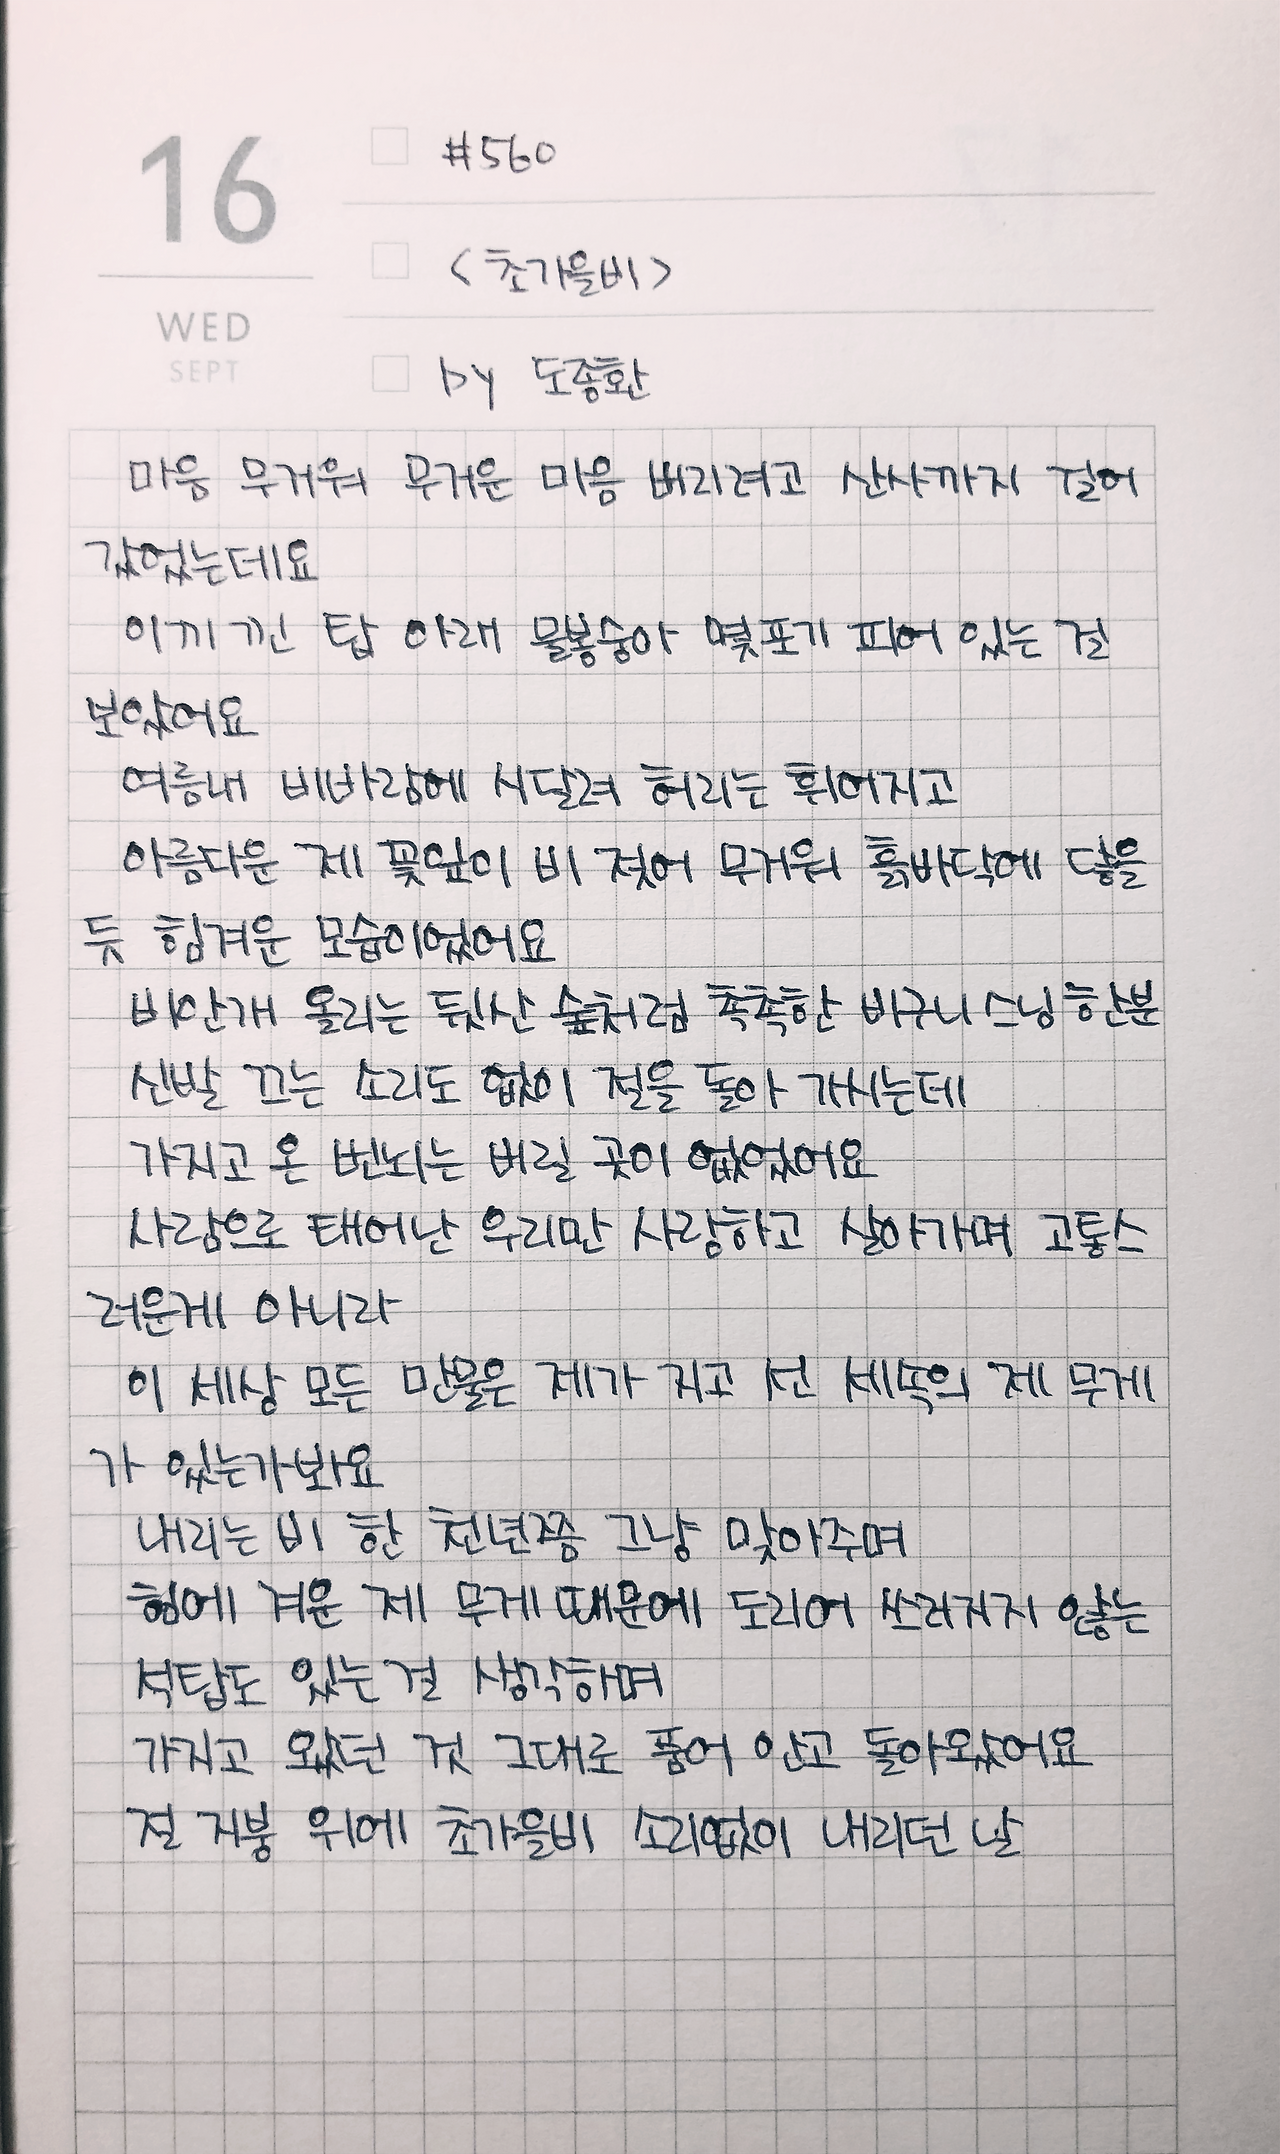 16
WED
SEPT
#560
<초가을비>
by 도종환
마음 무거워 무거운 마음 버리려고 산사까지 걸어
갔었는데요
이끼 낀 탑 아래 물봉숭아 몇포기 피어 있는 걸
보았어요
여름내 비바람에 시달려 허리는 휘어지고
아름다운 제 꽃잎이 비 젖어 무거워 흙바닥에 닿을
듯 힘겨운 모습이었어요
비안개 올리는 뒷산 숲처럼 촉촉한 비구니 스님 한분
신발 끄는 소리도 없이 절을 돌아 가시는데
가지고 온 번뇌는 버릴 곳이 없었어요
사람으로 태어난 우리만 사랑하고 살아가며 고통스
러운게 아니라
이 세상 모든 만물은 제가 지고 선 세속의 제 무게
가 있는가봐요
내리는 비 한 천년쯤 그냥 맞아주며
힘에 겨운 제 무게 때문에 도리어 쓰러지지 않는
석탑도 있는 걸 생각하며
가지고 왔던 것 그대로 품어 안고 돌아왔어요
절 지붕 위에 초가을비 소리없이 내리던 날